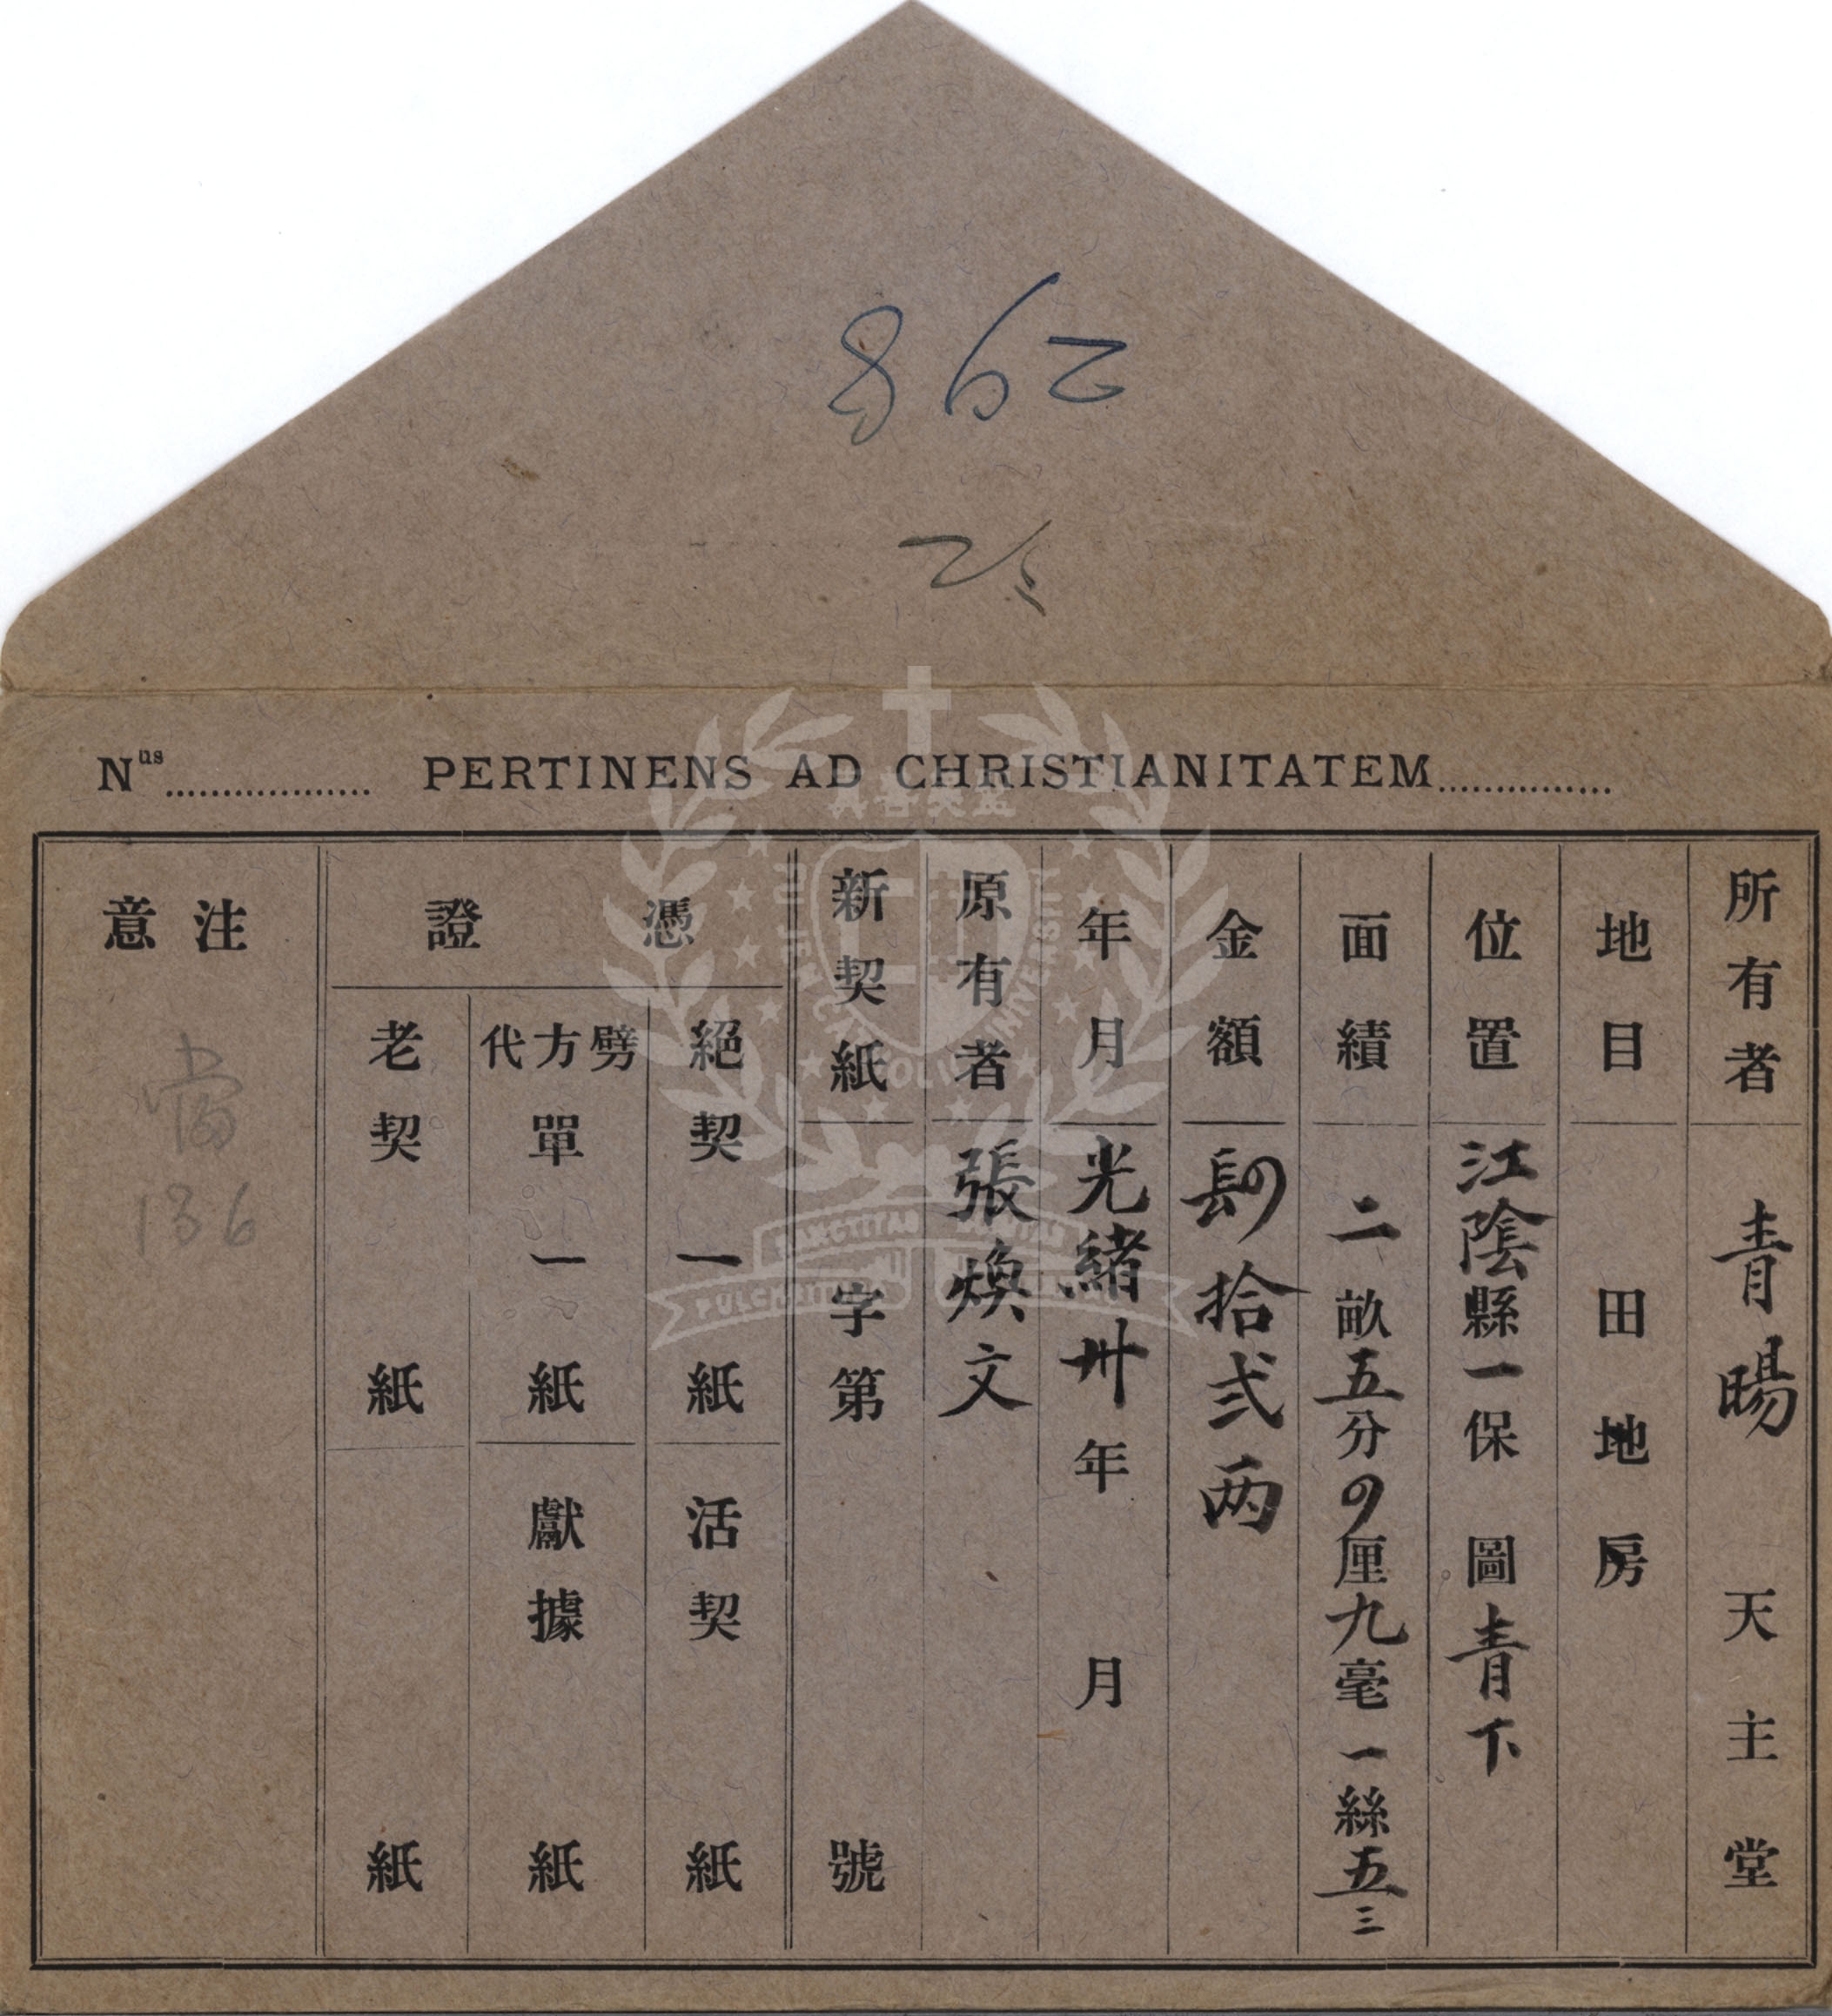 298
Nus.................. PERTINENS AD CHRISTIANITATEM...............
所有者 青暘 天主堂
地目 田地房
位置 江陰縣一保 圖青下
面績 二畝五分四厘九毫一絲五三
金額 肆拾弍两
年月 光緒卅年 月
原有者 張煥文
新契紙 字第 號
憑證
絕契一紙 活契 紙
劈方代單一紙 獻據 紙
老契 紙 紙
注意
當
136
真善美聖